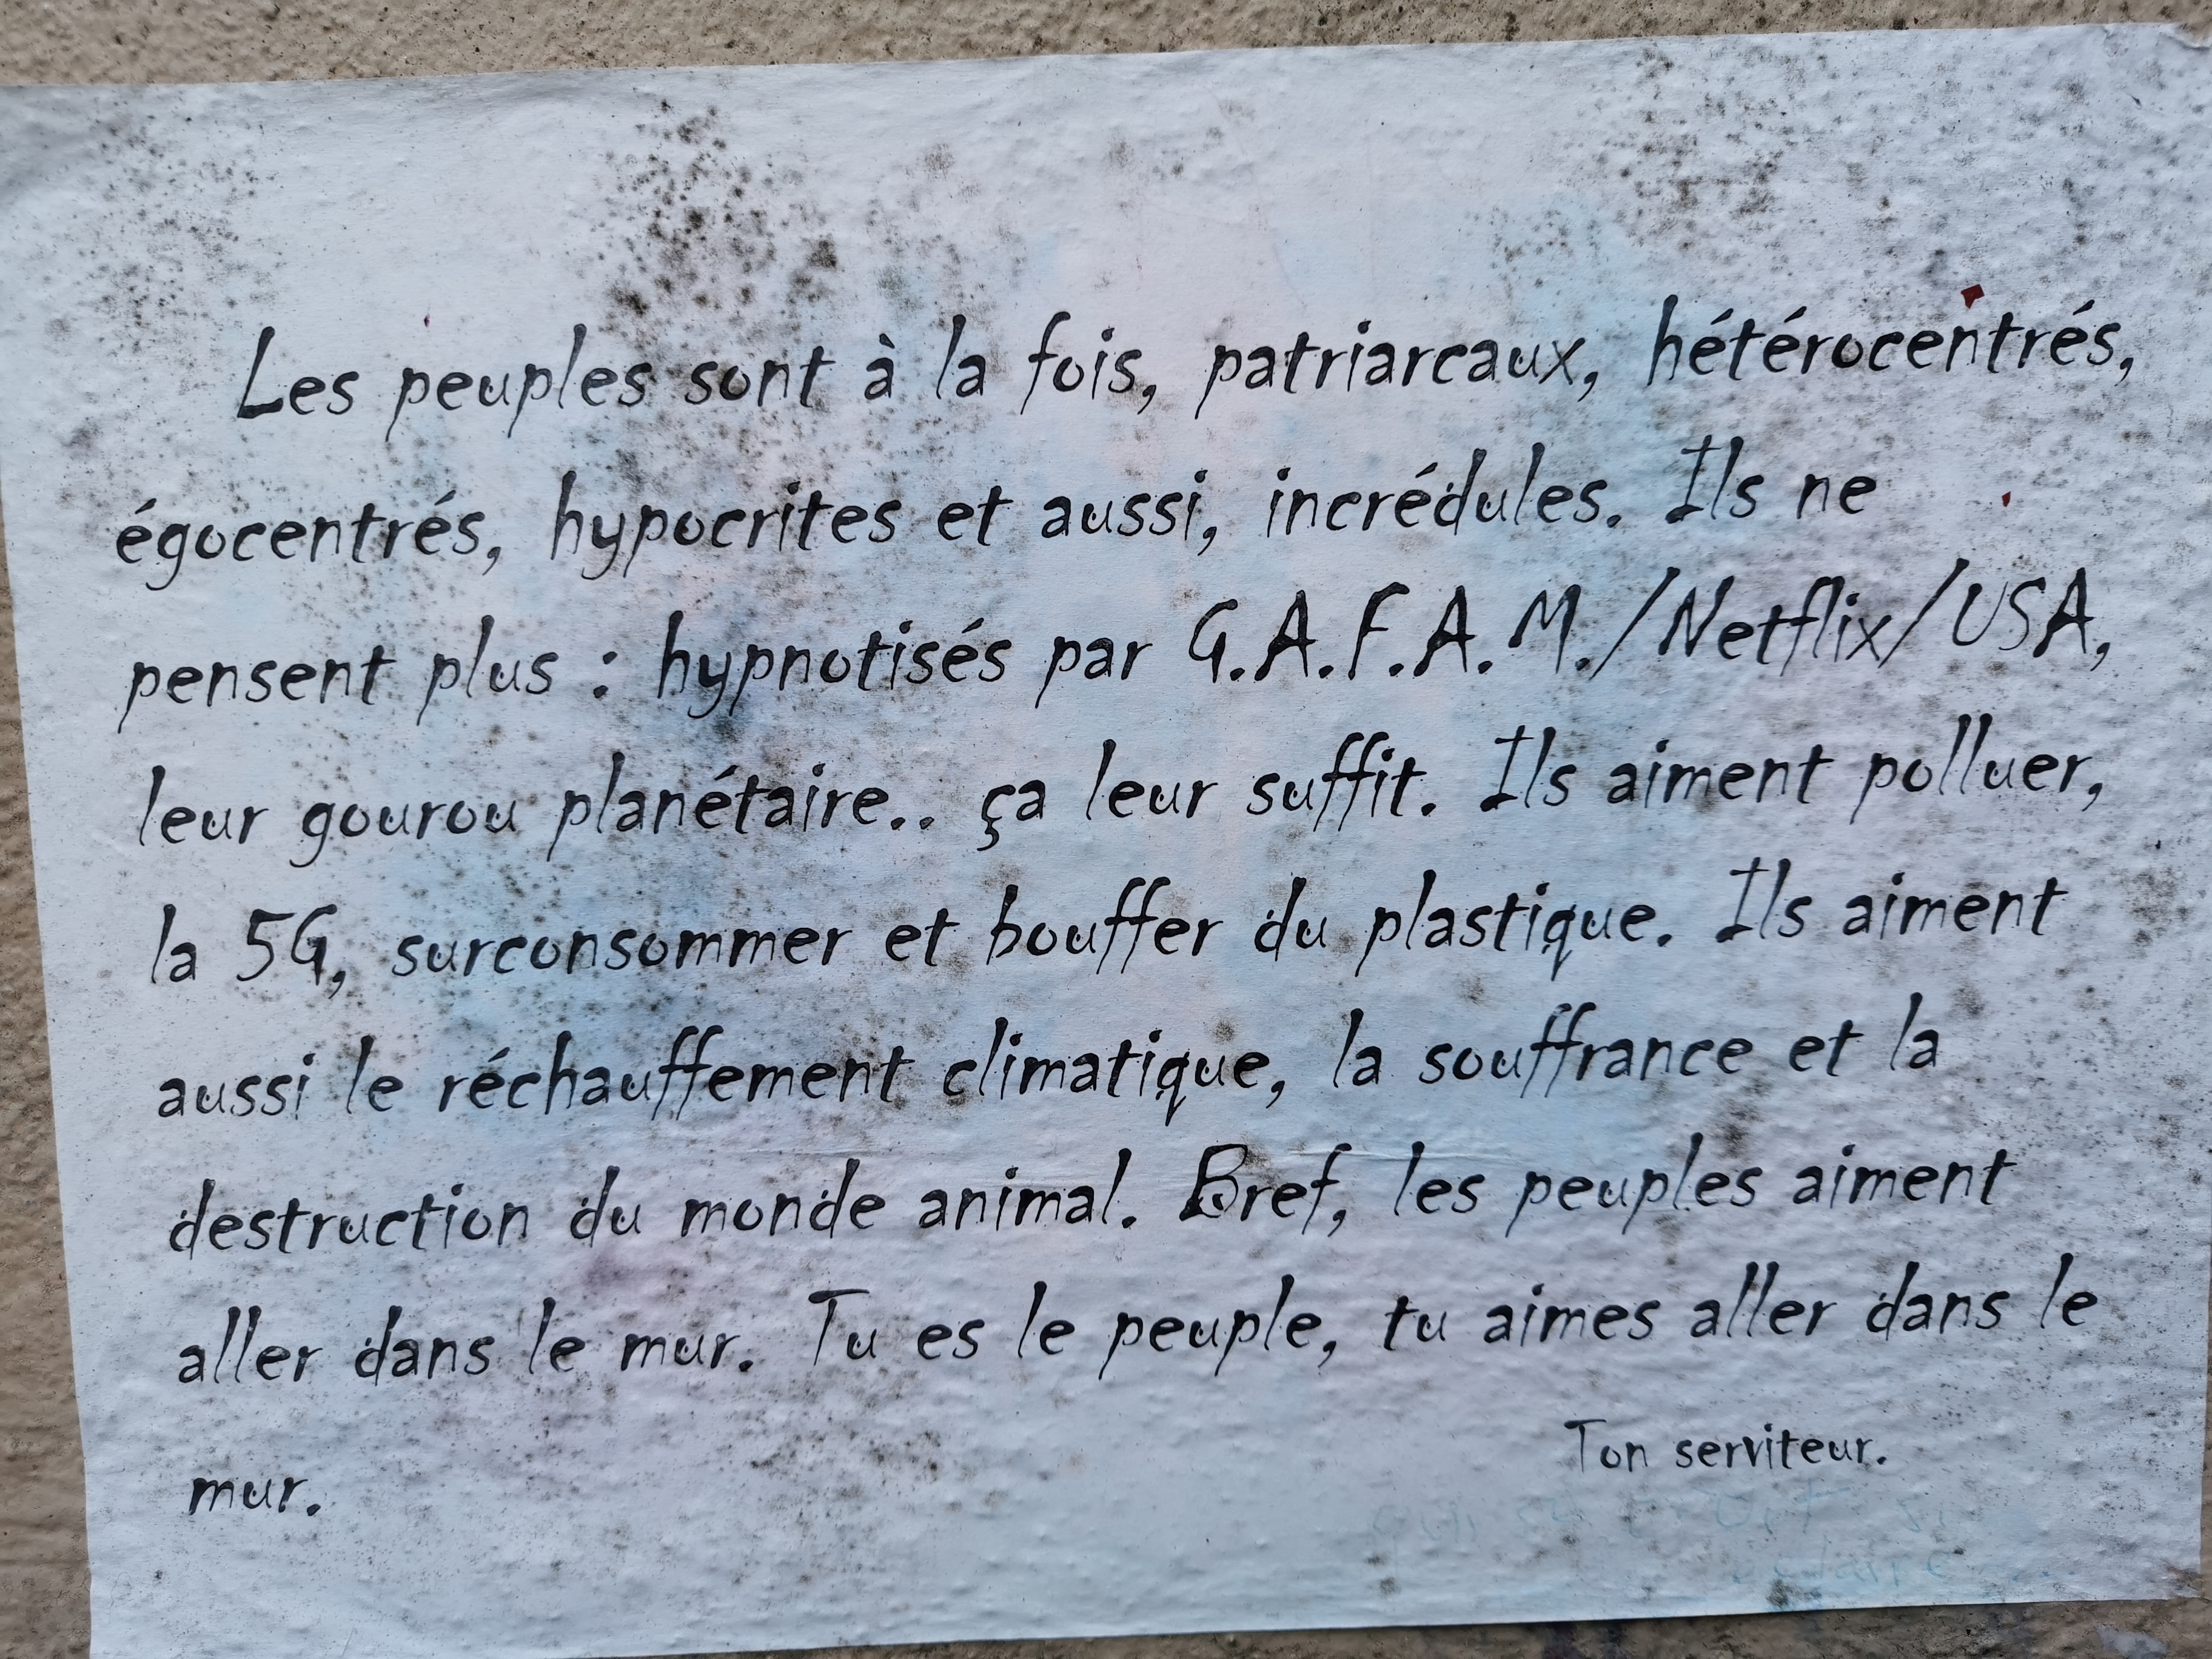 Les peuples sont à la fois, patriarcaux, hétérocentrés,
égocentrés, hypocrites et aussi, incrédules. Ils ne
pensent plus : hypnotisés par G.A.F.A.M./Netflix/USA,
leur gourou planétaire.. ça leur suffit. Ils aiment polluer,
la 5G, surconsommer et bouffer du plastique. Ils aiment
aussi le réchauffement climatique, la souffrance et la
destruction du monde animal. Bref, les peuples aiment
aller dans le mur. Tu es le peuple, tu aimes aller dans le
mur.
Ton serviteur.